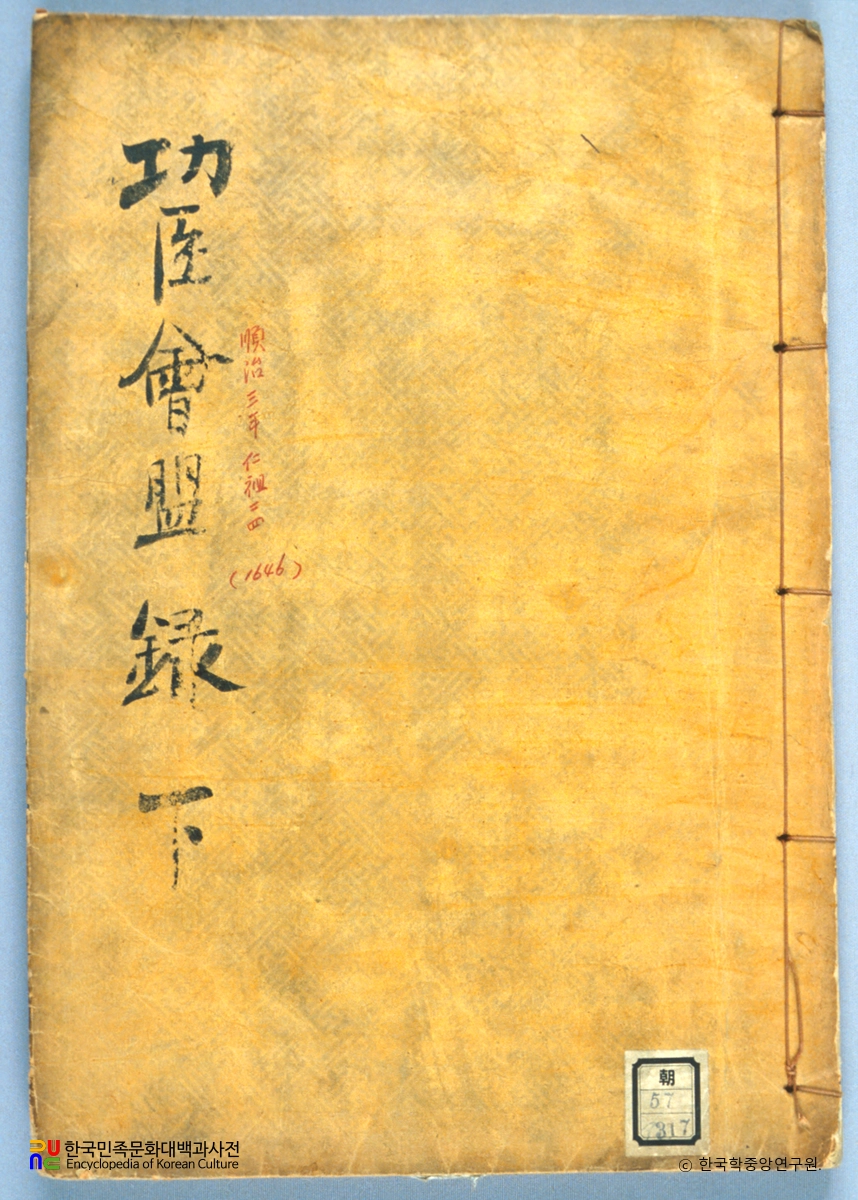 功臣會盟錄 下
順治三年 仁祖二四
(1646)
朝
57
317
한국민족문화대백과사전
Encyclopedia of Korean Culture
© 한국학중앙연구원.